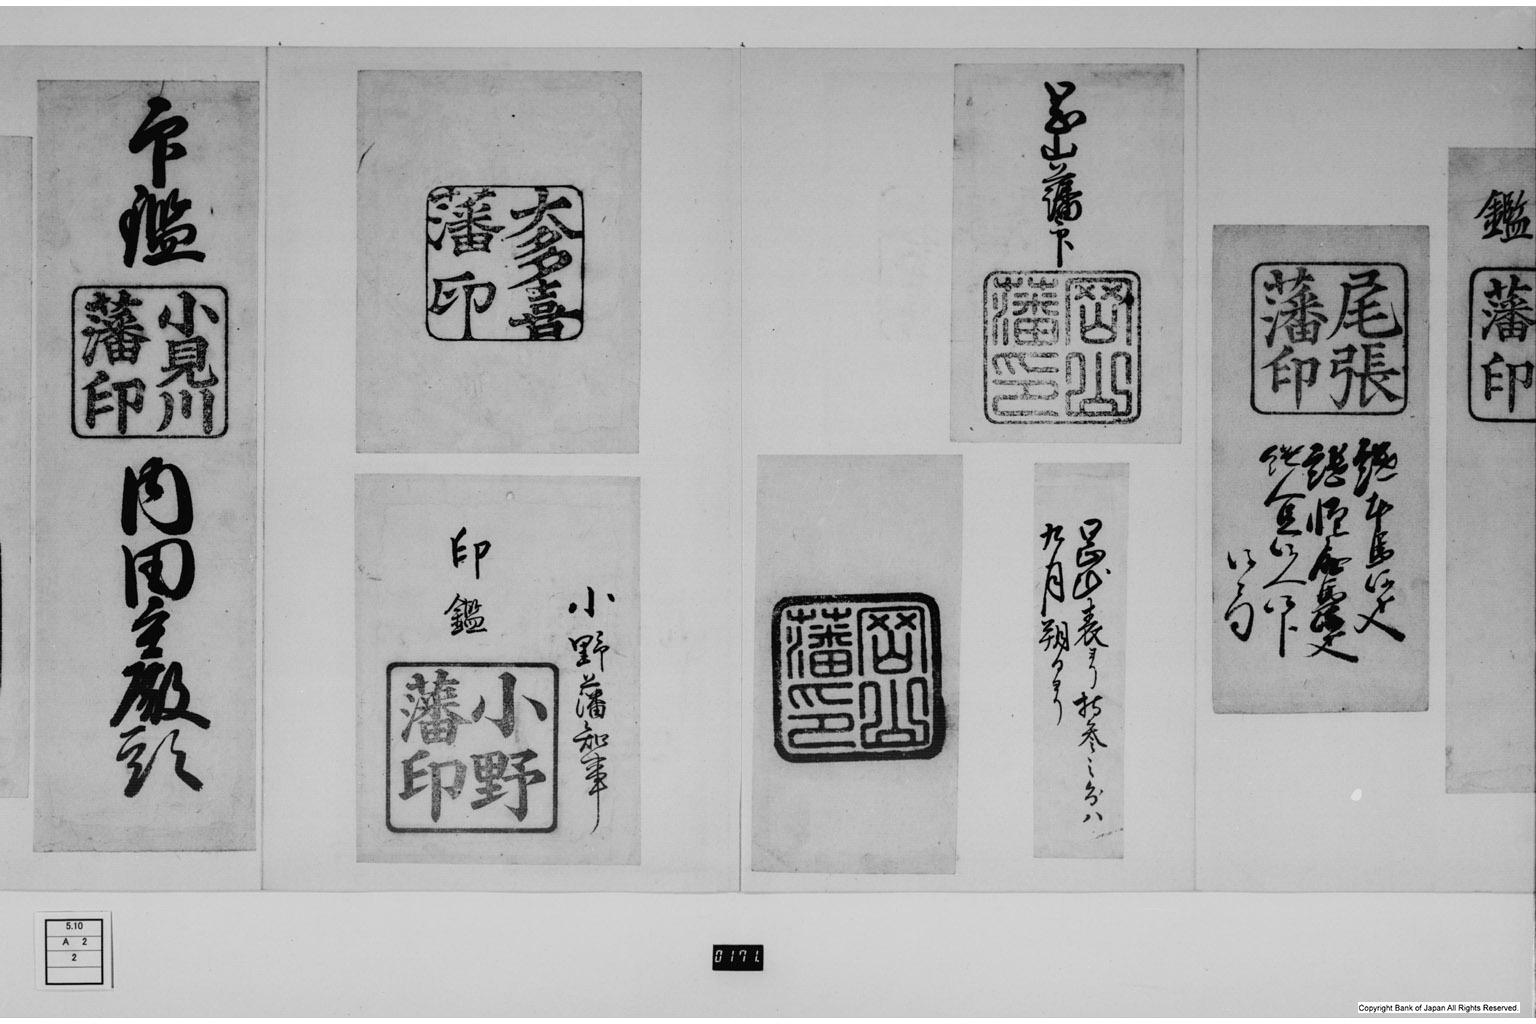 鑑
藩印
尾張
藩印
岡山藩印
岡山
藩印
岡山表ヨリ持参之分ハ
九月朔日ヨリ
岡山
藩印
大多喜
藩印
小野藩知事
印鑑
小野
藩印
印鑑
小見川
藩印
内田主殿頭
5.10
A 2
2
0171
Copyright Bank of Japan All Rights Reserved.